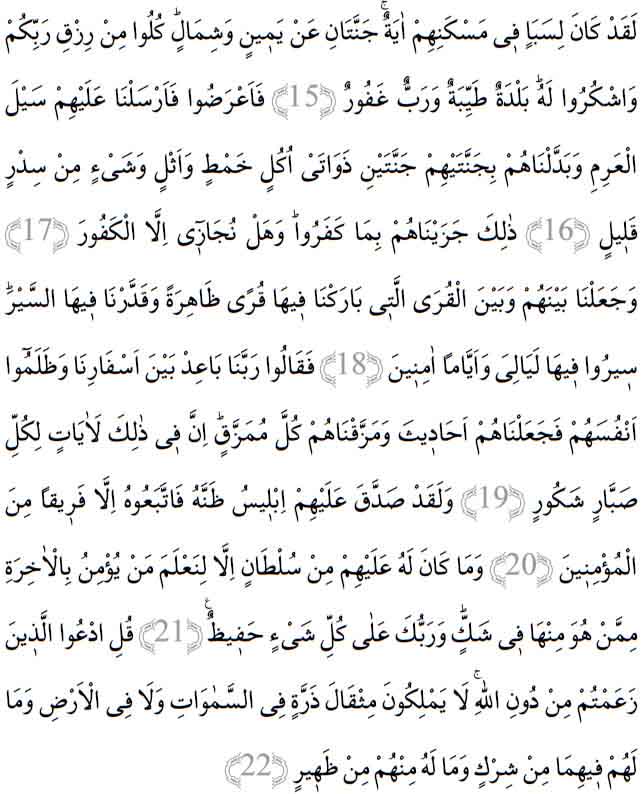 لَقَدْ كَانَ لِسَبَاٍ فٖى مَسْكَنِهِمْ اٰيَةٌۚ جَنَّتَانِ عَنْ يَمٖينٍ وَشِمَالٍؕ كُلُوا مِنْ رِزْقِ رَبِّكُمْ
وَاشْكُرُوا لَهُؕ بَلْدَةٌ طَيِّبَةٌ وَرَبٌّ غَفُورٌ ﴿15﴾ فَاَعْرَضُوا فَاَرْسَلْنَا عَلَيْهِمْ سَيْلَ
الْعَرِمِ وَبَدَّلْنَاهُمْ بِجَنَّتَيْهِمْ جَنَّتَيْنِ ذَوَاتَىْ اُكُلٍ خَمْطٍ وَاَثْلٍ وَشَیْءٍ مِنْ سِدْرٍ
قَلٖيلٍ ﴿16﴾ ذٰلِكَ جَزَيْنَاهُمْ بِمَا كَفَرُواؕ وَهَلْ نُجَازٖٓى اِلَّا الْكَفُورَ ﴿17﴾
وَجَعَلْنَا بَيْنَهُمْ وَبَيْنَ الْقُرَى الَّتٖى بَارَكْنَا فٖيهَا قُرًى ظَاهِرَةً وَقَدَّرْنَا فٖيهَا السَّيْرَؕ
سٖيرُوا فٖيهَا لَيَالِىَ وَاَيَّامًا اٰمِنٖينَ ﴿18﴾ فَقَالُوا رَبَّنَا بَاعِدْ بَيْنَ اَسْفَارِنَا وَظَلَمُٓوا
اَنْفُسَهُمْ فَجَعَلْنَاهُمْ اَحَادٖيثَ وَمَزَّقْنَاهُمْ كُلَّ مُمَزَّقٍؕ اِنَّ فٖى ذٰلِكَ لَاٰيَاتٍ لِكُلِّ
صَبَّارٍ شَكُورٍ ﴿19﴾ وَلَقَدْ صَدَّقَ عَلَيْهِمْ اِبْلٖيسُ ظَنَّهُ فَاتَّبَعُوهُ اِلَّا فَرٖيقًا مِنَ
الْمُؤْمِنٖينَ ﴿20﴾ وَمَا كَانَ لَهُ عَلَيْهِمْ مِنْ سُلْطَانٍ اِلَّا لِنَعْلَمَ مَنْ يُؤْمِنُ بِالْاٰخِرَةِ
مِمَّنْ هُوَ مِنْهَا فٖى شَكٍّؕ وَرَبُّكَ عَلٰى كُلِّ شَیْءٍ حَفٖيظٌࣖ ﴿21﴾ قُلِ ادْعُوا الَّذٖينَ
زَعَمْتُمْ مِنْ دُونِ اللّٰهِۚ لَا يَمْلِكُونَ مِثْقَالَ ذَرَّةٍ فِى السَّمٰوَاتِ وَلَا فِى الْاَرْضِ وَمَا
لَهُمْ فٖيهِمَا مِنْ شِرْكٍ وَمَا لَهُ مِنْهُمْ مِنْ ظَهٖيرٍ ﴿22﴾